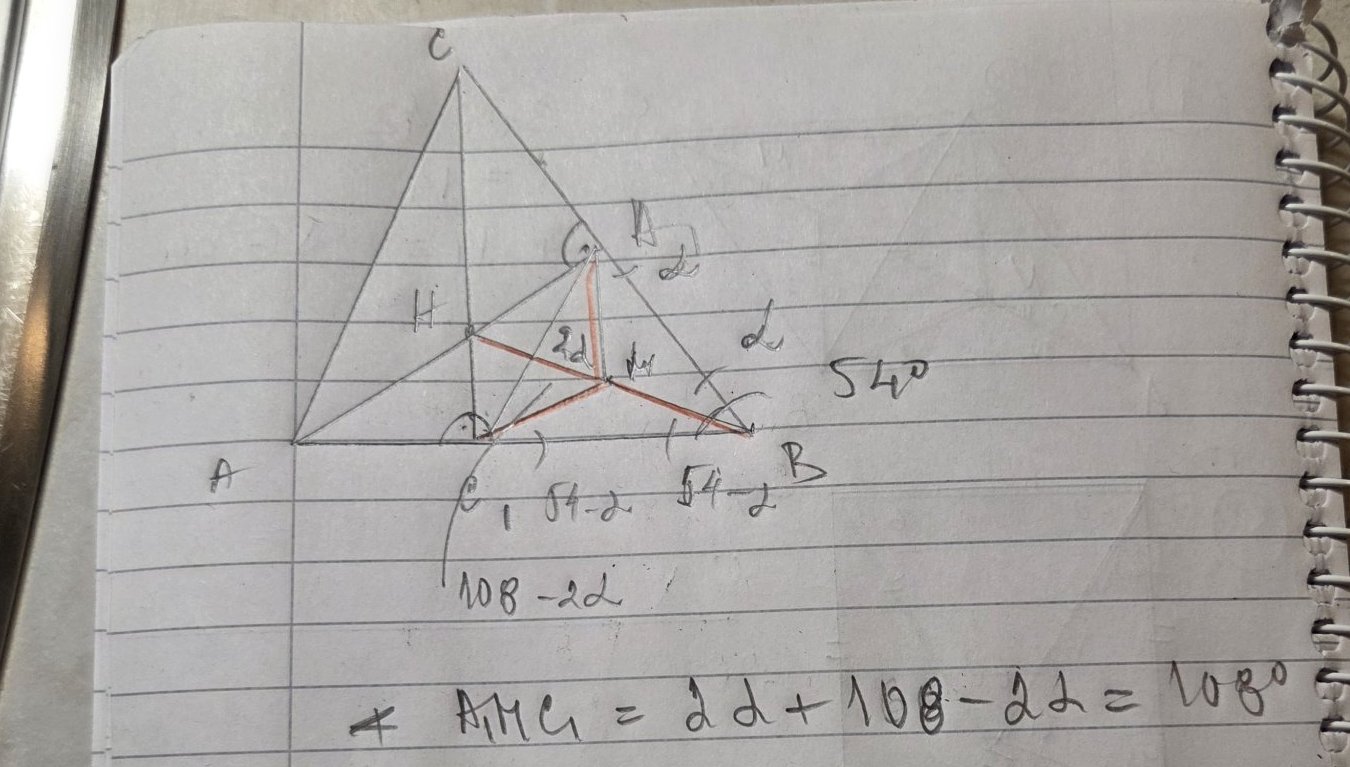 C
A
α
H
α
2α
M
54°
A
B
C₁ 54-α 54-α
108-2α
∡ A₁MC₁ = 2α + 108 - 2α = 108°